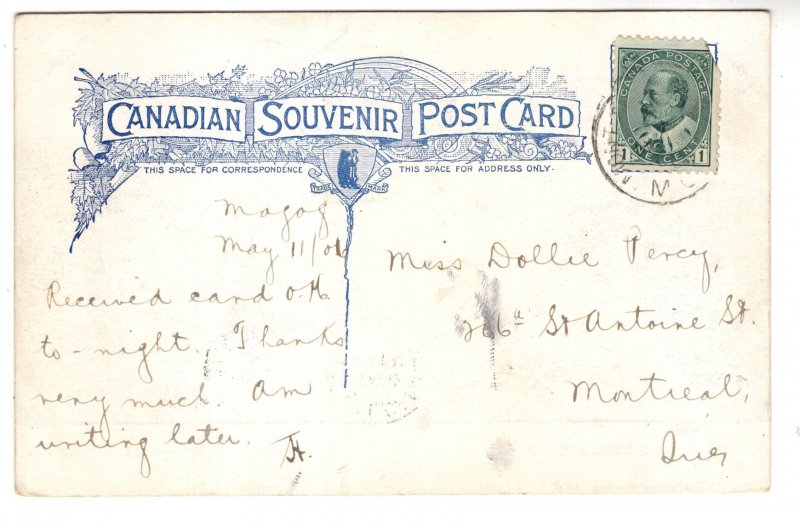 CANADIAN SOUVENIR POST CARD
THIS SPACE FOR CORRESPONDENCE
THIS SPACE FOR ADDRESS ONLY.
TRADE MARK
CANADA POSTAGE
1 ONE CENT 1
Magog
May 11/06
Received card O.K.
to-night. Thanks
very much. Am
writing later.
H.
Miss Dollie Percy,
266a St Antoine St.
Montreal,
Que,